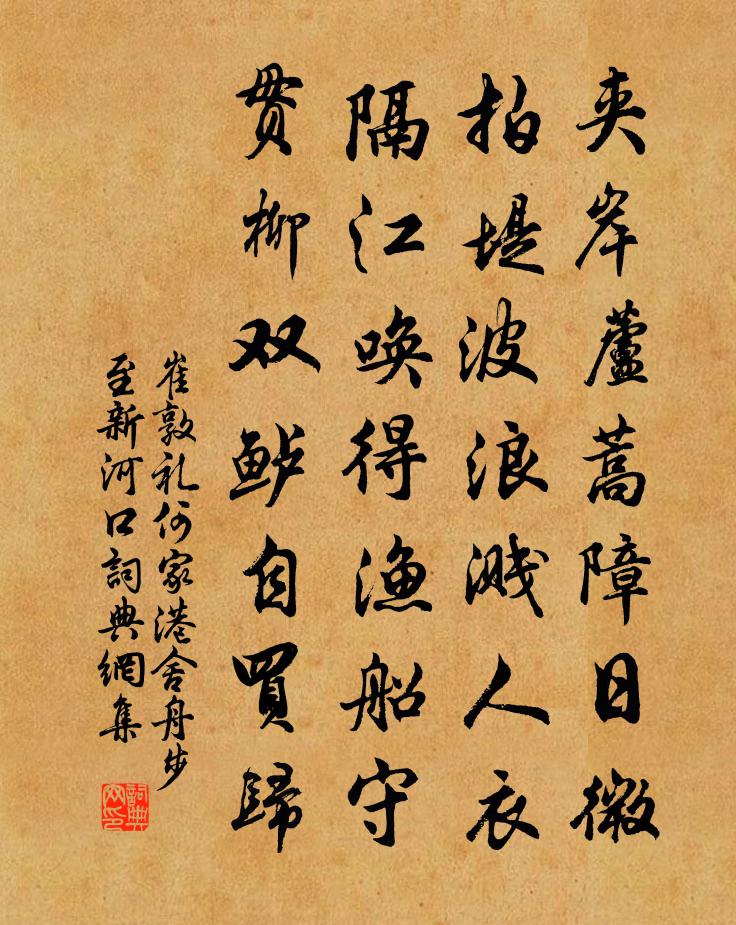 夹岸蘆蒿障日微
拍堤波浪溅人衣
隔江唤得渔船守
贯柳双鲈自買歸
崔敦礼何家港舍舟步
至新河口詞典網集
詞典
网印